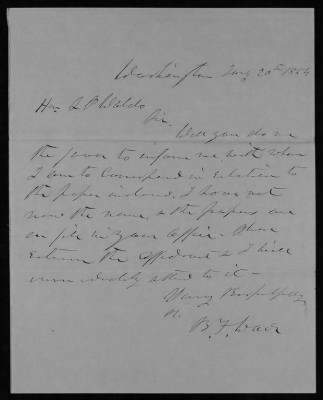 Washington Jany 20th 1854
Hon L P Waldo
Sir.
Will you do me
the favor to inform me with whom
I am to correspond in relation to
the paper inclosed, I have not
now the name, & the papers are
on file in your office. Please
return the affidavit & I will
immediately attend to it -
Very Respectfully
B. F. Wade